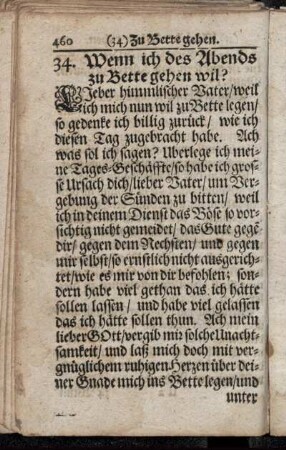 460 (34) Zu Bette gehen.
34. Wenn ich des Abends
zu Bette gehen wil?
LIeber himmlischer Vater/weil
ich mich nun wil zu Bette legen/
so gedenke ich billig zurück/ wie ich
diesen Tag zugebracht habe. Ach
was sol ich sagen? Uberlege ich mei-
ne Tages-Geschäffte/so habe ich gros-
se Ursach dich/lieber Vater/um Ver-
gebung der Sünden zu bitten/ weil
ich in deinem Dienst das Böse so vor-
sichtig nicht gemeidet/das Gute gegē
dir/gegen dem Nechsten/ und gegen
mir selbst/so ernstlich nicht ausgerich-
tet/wie es mir von dir befohlen; son-
dern habe viel gethan das ich hätte
sollen lassen/ und habe viel gelassen
das ich hätte sollen thun. Ach mein
lieber GOtt/vergib mir solche Unacht-
samkeit/ und laß mich doch mit ver-
gnüglichem ruhigen Herzen über dei-
ner Gnade mich ins Bette legen/und
unter